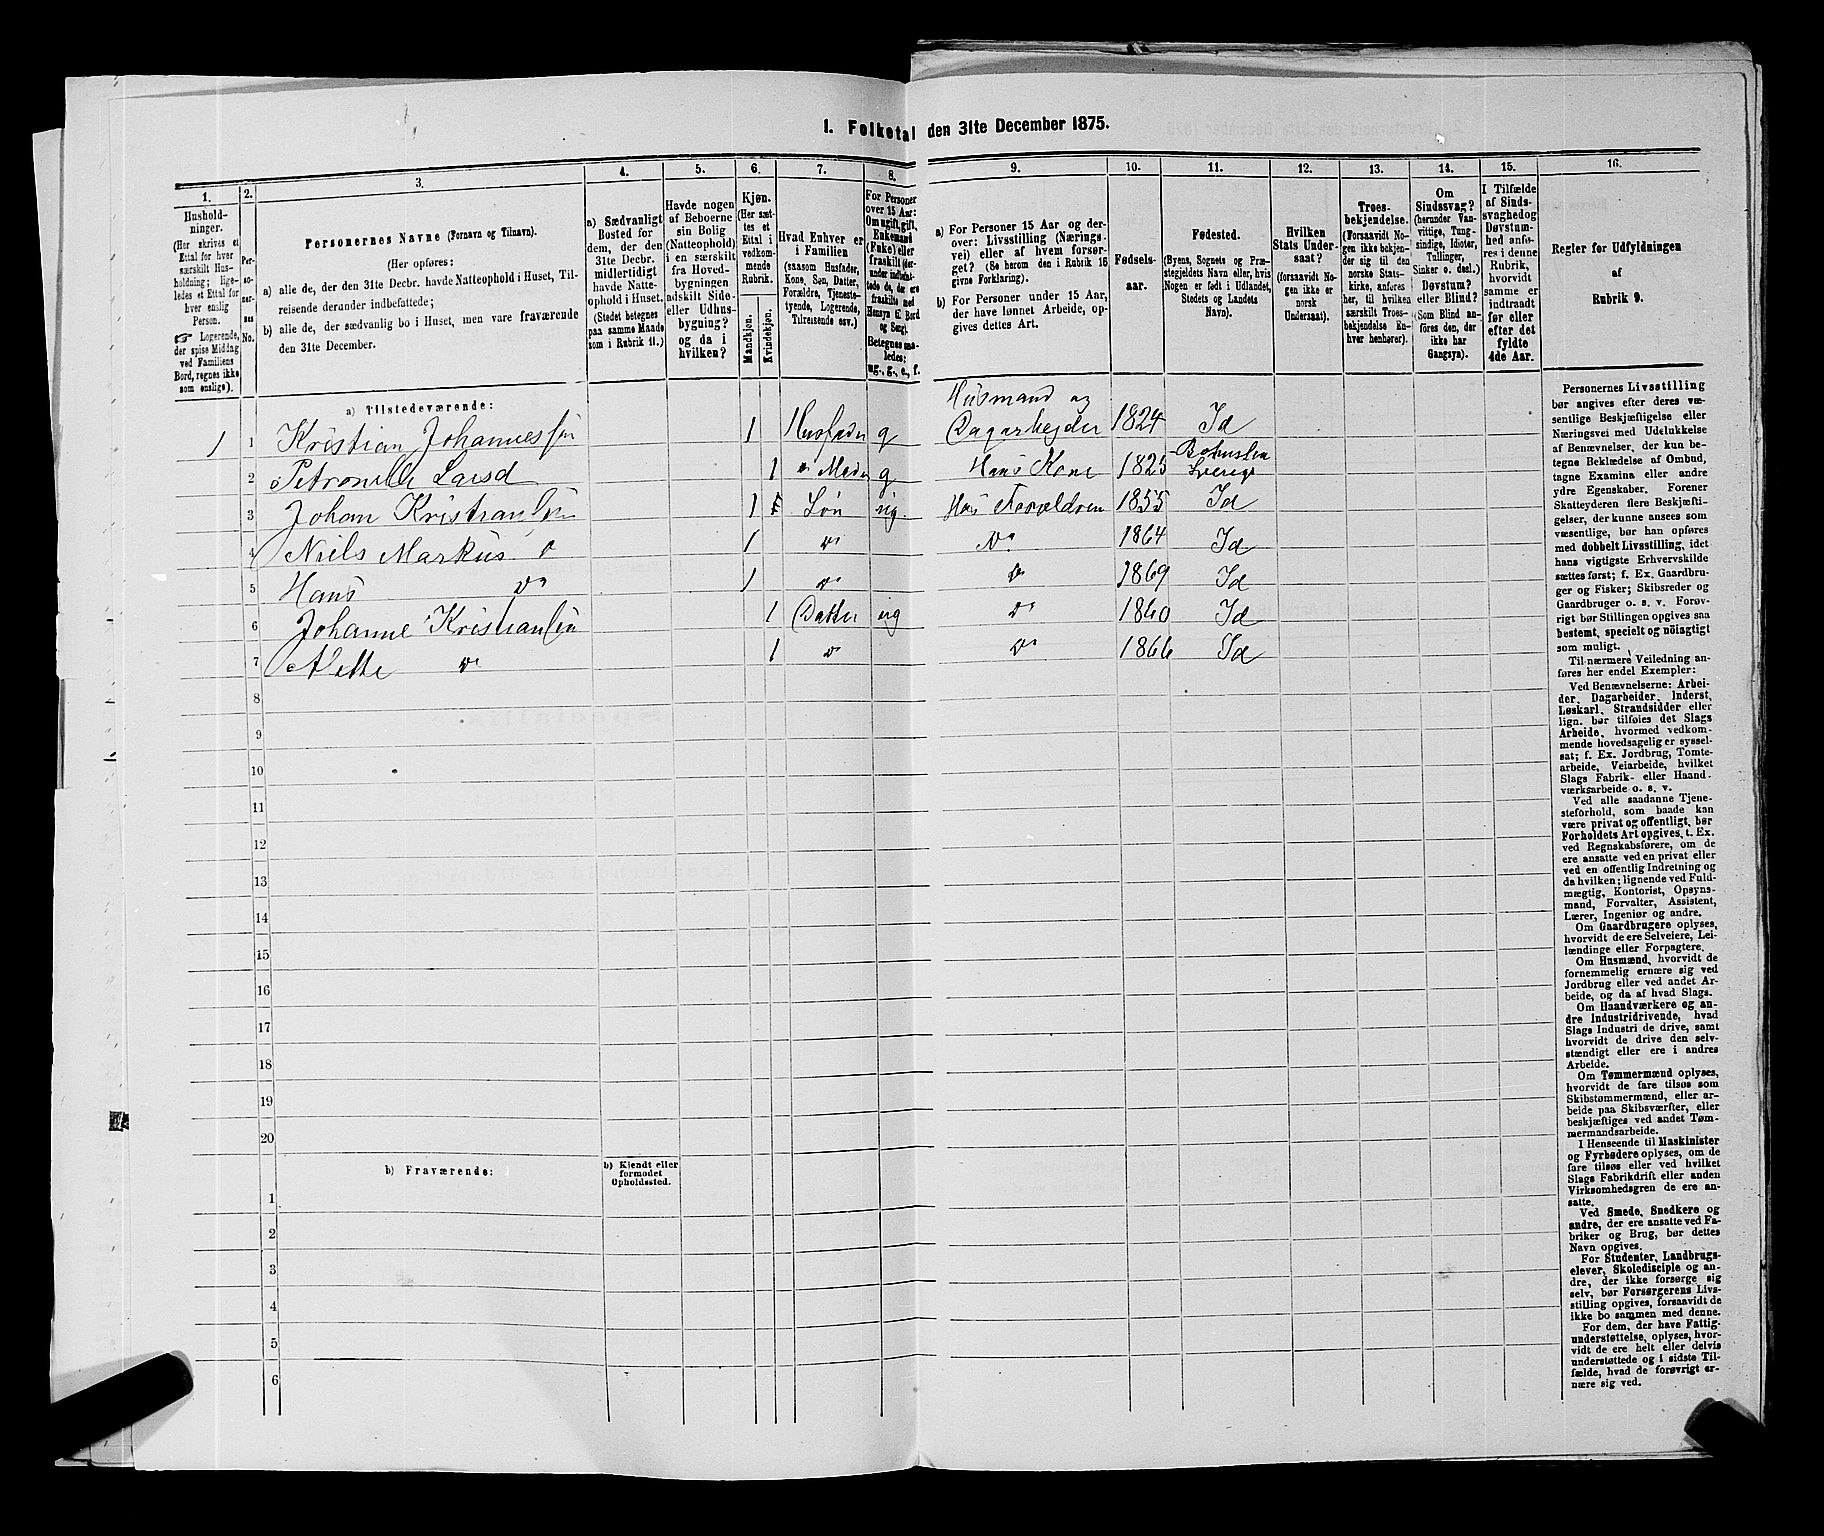 1. Folketal den 31te December 1875.
1.
Hushold-
ninger.
(Her skrives et
Ettal for hver
særskilt Hus-
holdning; lige-
ledes et Ettal for
hver enslig
Person.
☞ Logerende,
der spise Middag
ved Familiens
Bord, regnes ikke
som enslige).
2.
Per-
so-
ner-
nes
No.
3.
Personernes Navne (Fornavn og Tilnavn).
(Her opføres:
a) alle de, der den 31te Decbr. havde Natteophold i Huset, Til-
reisende derander indbefattede;
b) alle de, der sædvanlig bo i Huset, men vare fraværende
den 31te December.
4.
a) Sædvanligt
Bosted for
dem, der den
31te Decbr.
midlertidigt
havde Natte-
ophold i Huset.
(Stedet betegnes
paa samme Maade
som i Rubrik 11.)
5.
Havde nogen
af Beboerne
sin Bolig
(Natteophold)
i en særskilt
fra Hoved-
bygningen
adskilt Side-
eller Udhus-
bygning?
og da i
hvilken?
6.
Kjøn.
(Her sæt-
tes et
Ettal i
vedkom-
mende
Rubrik.)
Mandkjøn.
Kvindekjøn.
7.
Hvad Enhver er
i Familien
(saasom Husfader,
Kone, Søn, Datter,
Forældre, Tjeneste-
tyende, Logerende,
Tilreisende osv.)
8.
For Personer
over 15 Aar:
Om ugift, gift,
Enkemand
(Enke) eller
fraskilt
Betegnes saa-
ledes:
ug., g., e., f.
9.
a) For Personer 15 Aar og der-
over: Livsstilling (Nærings-
vei) eller af hvem forsør-
get? (Se herom den i Rubrik 16
givne Forklaring).
b) For Personer under 15 Aar,
der have lønnet Arbeide, op-
gives dettes Art.
10.
Fødsels-
aar.
11.
Fødested.
(Byens, Sognets og Præ-
stegjeldets Navn eller, hvis
Nogen er født i Udlandet,
Stedets og Landets
Navn).
12.
Hvilken
Stats Under-
saat?
(forsaavidt No-
gen ikke er
norsk
Undersaat).
13.
Troes-
bekjendelse.
(Forsaavidt No-
gen ikke bekjen-
der sig til den
norske Stats-
kirke, anføres
her, til hvilken
særskilt Troes-
bekjendelse En-
hver henhører).
14.
Om
Sindssvag?
(herunder Van-
vittige, Tung-
sindige, Idioter,
Tullinger,
Sinker o. desl.)
Døvstum?
eller Blind?
(Som Blind an-
føres den, der
ikke har
Gangsyn).
15.
I Tilfælde
af Sinds-
svaghedog
Døvstum-
hed anfø-
res i denne
Rubrik,
hvorvidt
samme er
indtraadt
før eller
efter det
fyldte
4de Aar.
16.
Regler for Udfyldningen
af
Rubrik 9.
a) Tilstedeværende:
Husmand og
1 1 Kristian Johannessen 1 Husfader g Dagarbejder 1824 Id
Bohuslen
2 Petronille Larsd 1 " Moder g Hans Kone 1825 Sverige
3 Johan Kristiansen 1 Søn ug. Hos Forældren 1855 Id
4 Niels Markus do 1 do do 1864 Id
5 Hans do 1 do do 1869 Id
6 Johanne Kristiansen 1 Datter ug do 1860 Id
7 Alette do 1 do do 1866 Id
8
9
10
11
12
13
14
15
16
17
18
19
20
b) Fraværende:
b) Kjendt eller
formodet
Opholdssted.
1
2
3
4
5
6
Personernes Livsstilling
bør angives efter deres væ-
sentlige Beskjæftigelse eller
Næringsvei med Udelukkelse
af Benævnelser, der kun be-
tegne Beklædelse af Ombud,
tagne Examina eller andre
ydre Egenskaber. Forener
Skatteyderen flere Beskjæfti-
gelser, der kunne ansees som
væsentlige, bør han opføres
med dobbelt Livsstilling, idet
hans vigtigste Erhvervskilde
sættes først; f. Ex. Gaardbru-
ger og Fisker; Skibsreder og
Gaardbruger o. s. v. Forøv-
rigt bør Stillingen opgives saa
bestemt, specielt og nöiagtigt
som muligt.
Til nærmere Veiledning an-
føres her endel Exempler:
Ved Benævnelserne: Arbei-
der, Dagarbeider, Inderst,
Løskarl, Strandsidder eller
lign. bør tilføies det Slags
Arbeide, hvormed vedkom-
mende hovedsagelig er syssel-
sat; f. Ex. Jordbrug, Tomte-
arbeide, Veiarbeide, hvilket
Slags Fabrik- eller Haand-
værksarbeide o. s. v.
Ved alle saadanne Tjene-
steforhold, som baade kan
være privat og offentligt, bør
Forholdets Art opgives, t. Ex.
ved Regnskabsførere, om de
ere ansatte ved en privat eller
ved en offentlig Indretning og
da hvilken; lignende ved Fuld-
mægtig, Kontorist, Opsyns-
mand, Forvalter, Assistent,
Lærer, Ingeniør og andre.
Om Gaardbrugere oplyses,
hvorvidt de ere Selveiere, Lei-
lændinge eller Forpagtere.
Om Husmænd, hvorvidt de
fornemmelig ernære sig ved
Jordbrug eller ved andet Ar-
beide, og da af hvad Slags.
Om Haandværkere og an-
dre Industridrivende, hvad
Slags Industri de drive, samt
hvorvidt de drive den selv-
stændigt eller ere i andres
Arbeide.
Om Tømmermænd oplyses,
hvorvidt de fare tilsøs som
Skibstømmermænd, eller ar-
beide paa Skibsværfter, eller
beskjæftiges ved andet Tøm-
mermandsarbeide.
I Henseende til Maskinister
og Fyrbødere oplyses, om de
fare tilsøs eller ved hvilket
Slags Fabrikdrift eller anden
Virksomhedsgren de ere an-
satte.
Ved Smede, Snedkere og
andre, der ere ansatte ved Fa-
briker og Brug, bør dettes
Navn opgives.
For Studenter, Landbrugs-
elever, Skoledisciple og an-
dre, der ikke forsørge sig
selv, bør Forsørgerens Livs-
stilling opgives, forsaavidt de
ikke bo sammen med denne.
For dem, der have Fattig-
understøttelse, oplyses, hvor-
vidt de ere helt eller delvis
understøttede og i sidste Til-
fælde, hvad de forøvrigt er-
nære sig ved.